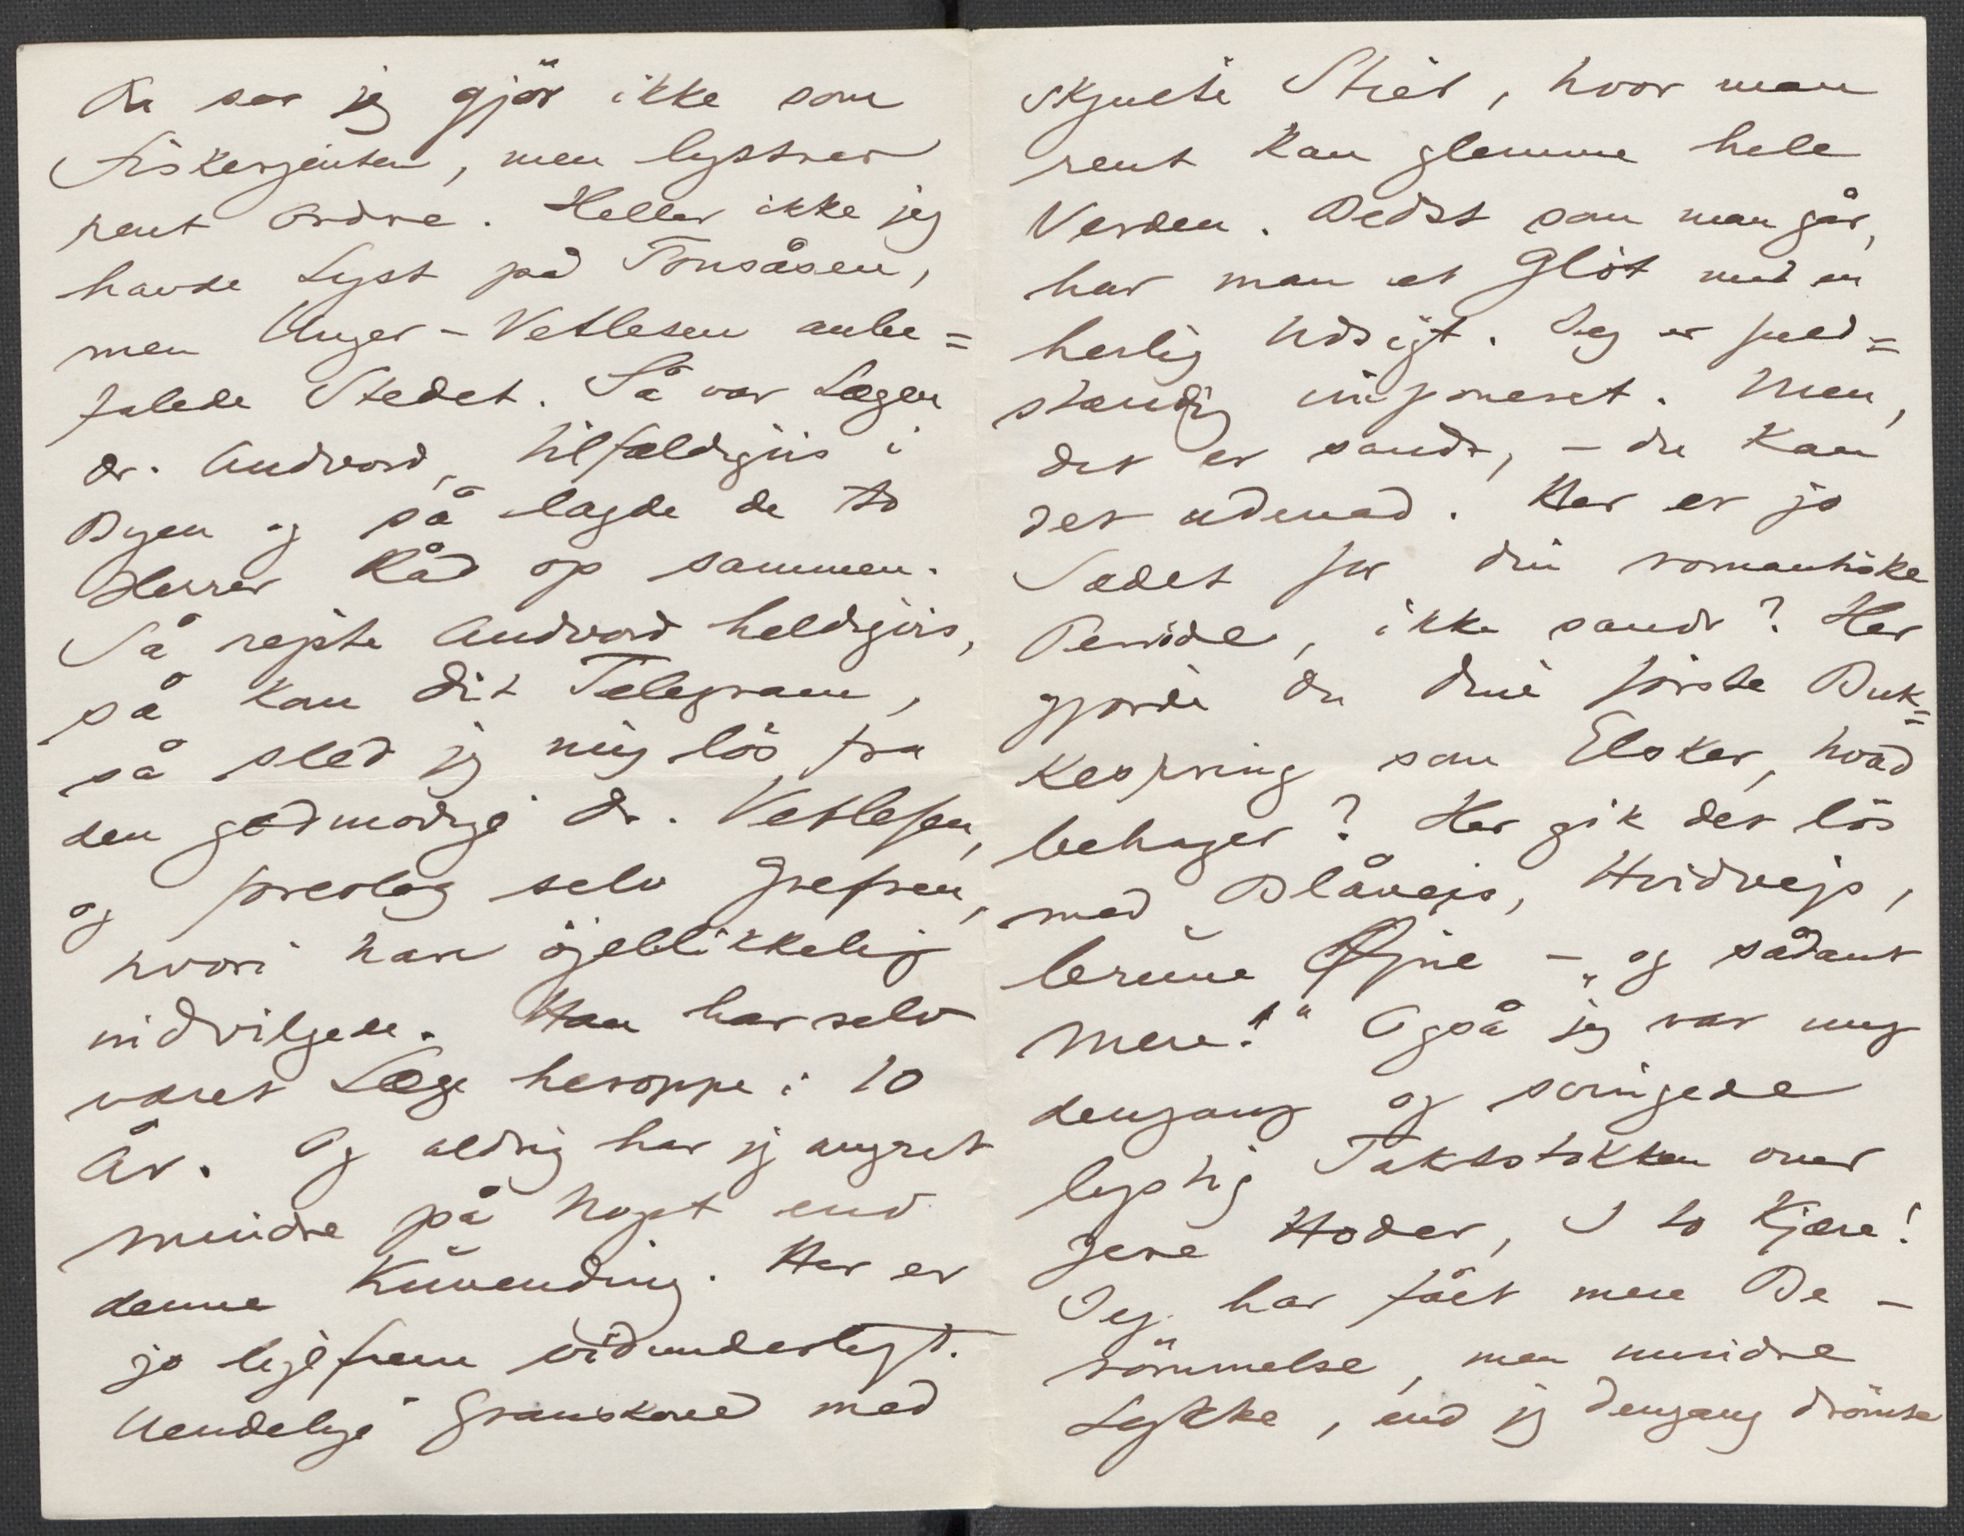 Du ser jeg gjör ikke som
Fiskerjenten, men lystrer
rent Ordre. Heller ikke jeg
havde Lyst på Tonsåsen,
men Unger-Vetlesen anbe=
falede Stedet. Så var Lægen
dr. Andvord, tilfældigvis i
Byen og så lagde de to
Herrer Råd op sammen.
Så rejste Andvord heldigvis,
så kom dit Telegram,
så sled jeg mig lös fra
den godmodige Dr. Vetlesen,
og foreslog selv Grefsen,
hvori han öjeblikkelig
indvilgede. Han har selv
været Læge heroppe i 10
År. Og aldrig har jeg angret
mindre på noget end
denne Kuvending. Her er
jo ligefrem vidunderligt.
Uendelige Granskove med
skjulte Stier, hvor man
rent kan glemme hele
Verden. Bedst som man går,
har man et Glöt med en
herlig Udsigt. Jeg er fuld=
standig imponeret. Men,
det er sandt, – du kan
det udenad. Her er jo
Sædet for din romantiske
Periode, ikke sandt? Her
gjorde du dine förste Buk=
kespring som Elsker, hvad
behager? Her gik det lös
med Blåvejs, Hvidvejs,
brune Øjne – „og sådant
mere!“ Også jeg var ung
dengang og svingede
lystig Taktstokken over
Jere Hoder, I to Kjære!
Jeg har fået mere Be-
römmelse, men mindre
Lykke, end jeg dengang drömte